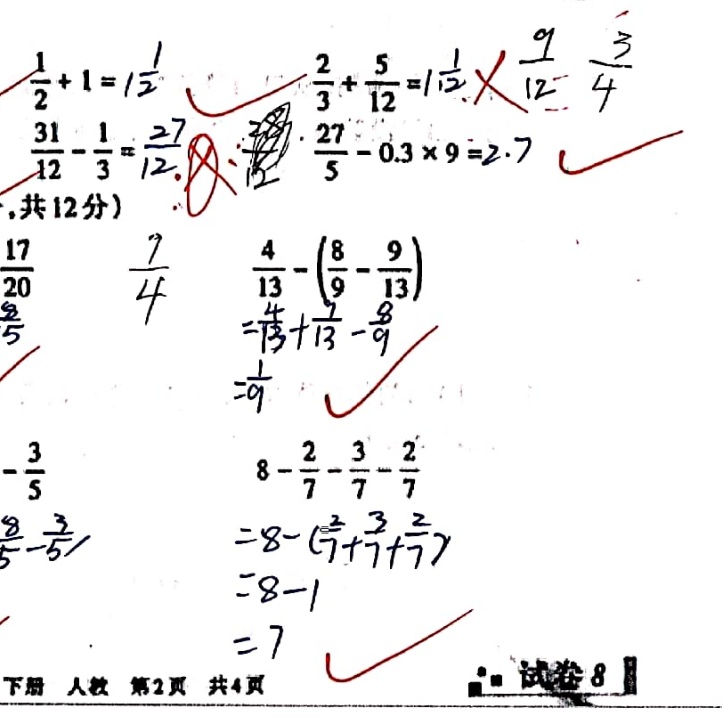 1/2 + 1 = 1 1/2    2/3 + 5/12 = 1 1/12    9/12    3/4
31/12 - 1/3 = 27/12    27/5 - 0.3 × 9 = 2.7
,共12分)
17/20    7/4    4/13 - (8/9 - 9/13)
= 4/13 + 9/13 - 8/9
= 1/9
- 3/5    8 - 2/7 - 3/7 - 2/7
8/5 - 3/5    = 8 - (2/7 + 3/7 + 2/7)
= 8 - 1
= 7
下册 人教 第2页 共4页    试卷 8